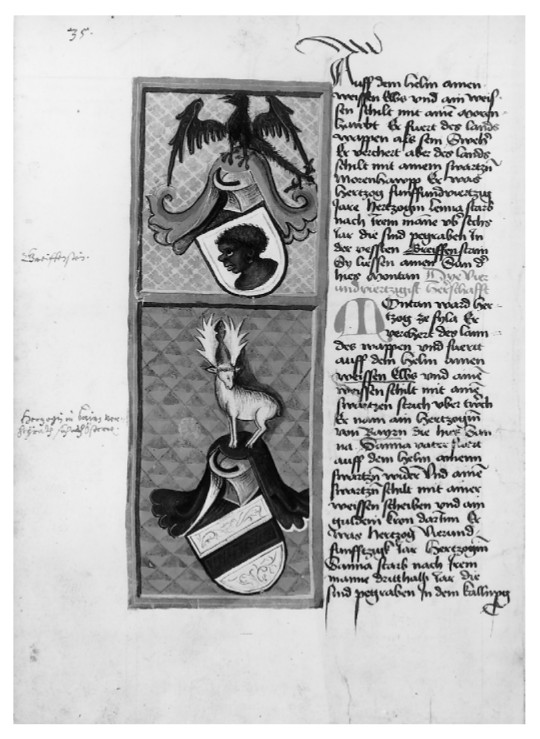 35.
Auff dem helm ainen
weissen Elbs vnd ain weis
sen schilt mit aine Moren
hawbt Er fuert des lands
wappen als sein
Er verchert aber des lands
schilt mit ainem swartzn
Morenhawpp Er was
hertzog funffundviertzig
Jare Hertzogin Lenna starb
nach irem mane vber sechs
iar die sind pegraben in
der vessten Greiffenstain
Sy liessen ainen Sun der
hies Montan Dye vier
undviertzigist herschafft
Montan ward her
tzog ze
verchert des lann
des wappen vnd fuertt
auff dem helm ainen
weissen Elbs vnd aine
weissen schilt mit aine
swartzen strich vber twerch
Er nam ain hertzogin
von Bayrn die hies San
na. Sanna vater fuert
auff dem helm ainenn
swartzn wider Vnd aine
swartzn schilt mit ainer
weissen scheiben vnd ain
guldein kron darinn Er
was hertzog Vierund
funfftzigk Jar Hertzogin
Sanna starb nach irem
manne dritthalb Jar die
sind pegraben In dem